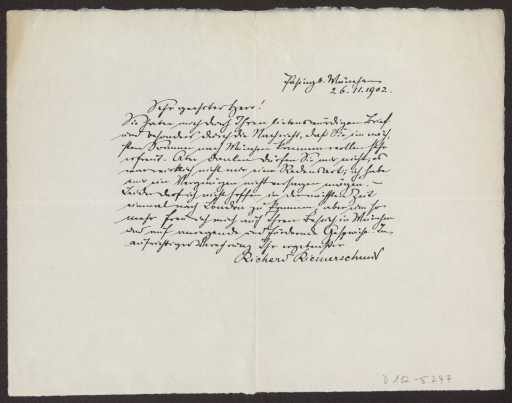 Pasing b. München
26.11.1902.
Sehr geehrter Herr!
Sie haben mich durch Ihren liebenswürdigen Brief
und besonders durch die Nachricht, daß Sie im näch-
sten Sommer nach München kommen wollen sehr
erfreut. Aber danken dürfen Sie mir nicht, es
war wirklich nicht nur eine Redensart, ich habe
mir ein Vergnügen nicht versagen mögen. –
Leider darf ich nicht hoffen in der nächsten Zeit
einmal nach London zu kommen, aber um so
mehr freue ich mich auf Ihren Besuch in München
und auf anregende und fördernde Gespräche. In
aufrichtiger Verehrung Ihr ergebenster
Richard Riemerschmid
D 102-5247